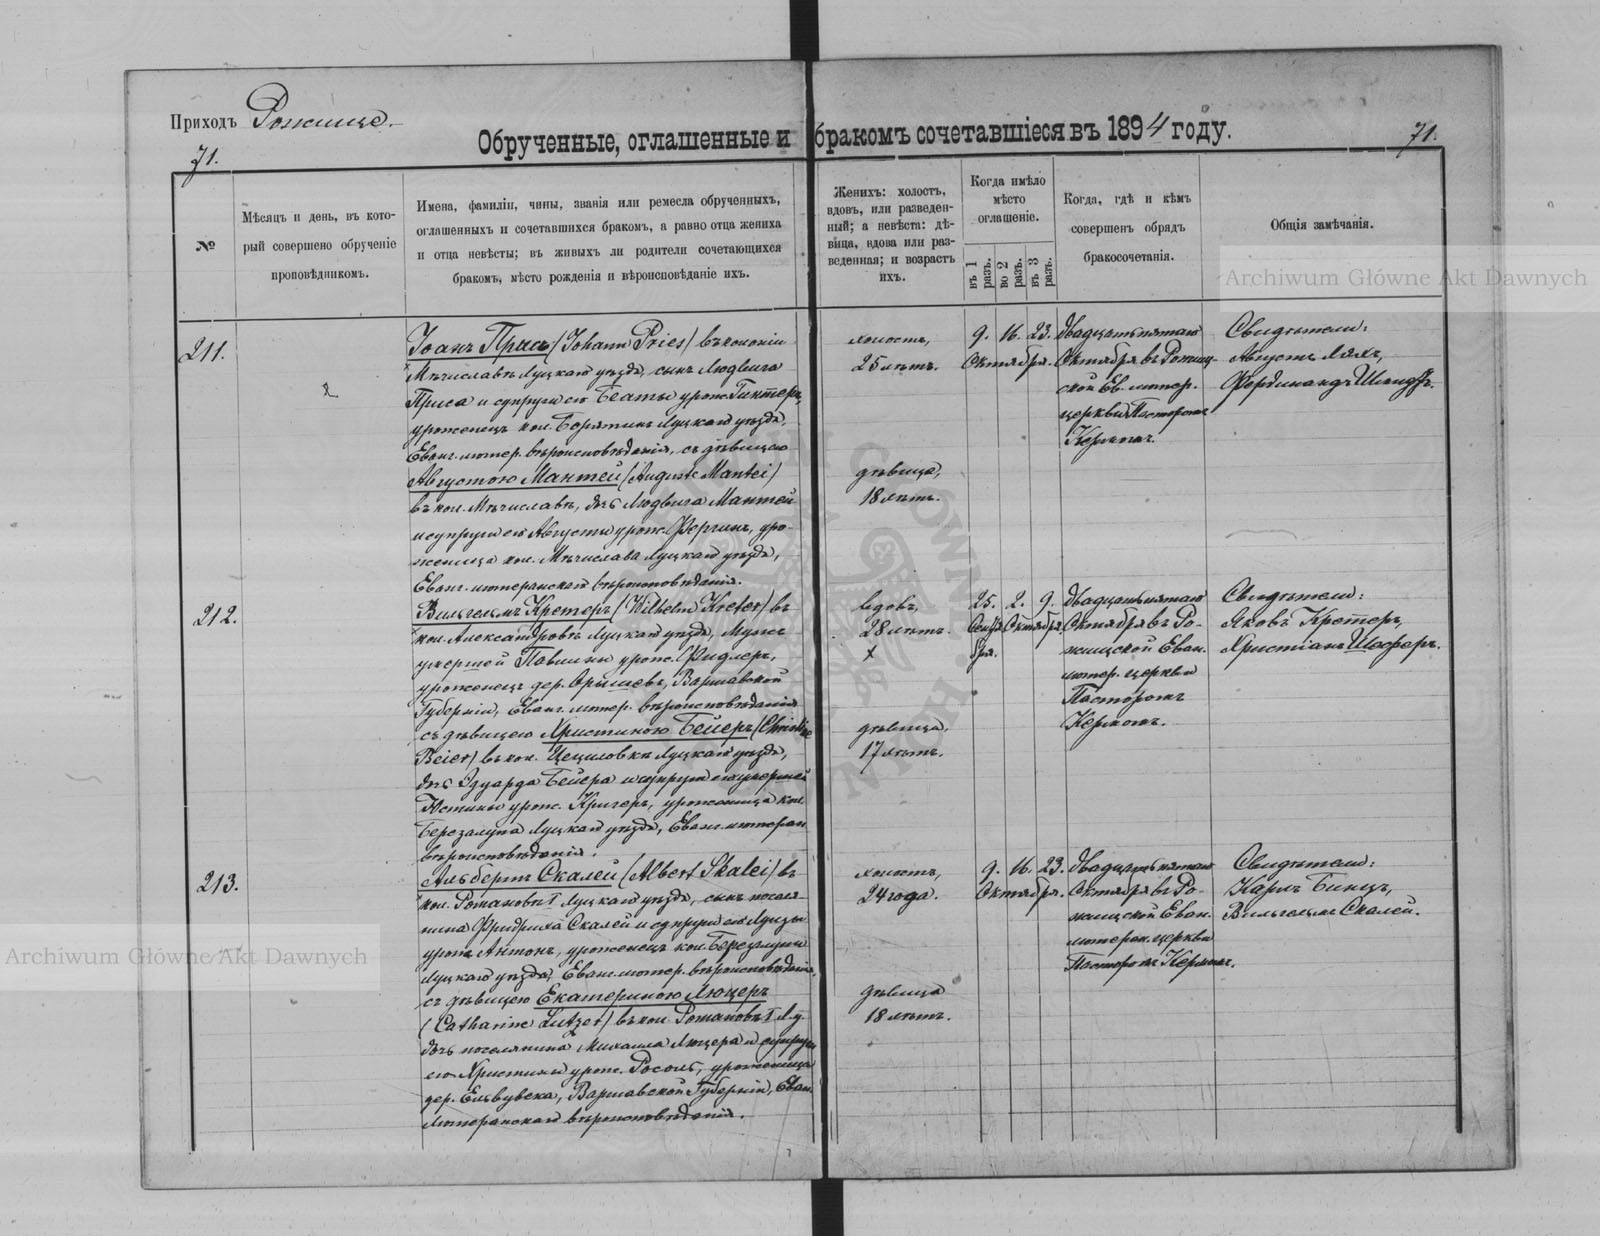 Приходъ Рожище.
71.
Обрученные, оглашенные и бракомъ сочетавшіеся въ 1894 году.
71.
№
Мѣсяцъ и день, въ кото-
рый совершено обрученіе
проповѣдникомъ.
Имена, фамиліи, чины, званія или ремесла обрученныхъ,
оглашенныхъ и сочетавшихся бракомъ, а равно отца жениха
и отца невѣсты; въ живыхъ ли родители сочетающихся
бракомъ, мѣсто рожденія и вѣроисповѣданіе ихъ.
Женихъ: холостъ,
вдовъ, или разведен-
ный; а невѣста: дѣ-
вица, вдова или раз-
веденная; и возрастъ
ихъ.
Когда имѣло
мѣсто
оглашеніе.
въ 1 разъ.
во 2 разъ.
въ 3 разъ.
Когда, гдѣ и кѣмъ
совершенъ обрядъ
бракосочетанія.
Общія замѣчанія.
Archiwum Główne Akt Dawnych
211.
Іоанъ Присъ (Johann Pries) въ колоніи
Мѣчиславѣ Луцкаго уѣзда, сынъ Людвига
Приса и супруги его Беаты урож. Гинтеръ,
уроженецъ кол. Борятинъ Луцкаго уѣзда,
Еванг. лютер. вѣроисповѣданія, съ дѣвицею
Августою Мантей (Auguste Mantei)
въ кол. Мѣчиславѣ, дочь Людвига Мантей
и супруги его Августы урож. уро-
женица кол. Мѣчислава Луцкаго уѣзда,
Еванг. лютеранскаго вѣроисповѣданія.
холостъ,
25 лѣтъ.
дѣвица,
18 лѣтъ.
9. 16. 23.
Октября.
двадцать пятаго
Октября въ Рожищ-
ской Ев. лютер.
церкви Пасторомъ
Керномъ.
Свидѣтели:
Августъ Ляхъ,
Фердинандъ
212.
Вильгельмъ Кретеръ (Wilhelm Kreter) въ
кол. Александровкѣ Луцкаго уѣзда, мужъ
умершей Павлины урож. Фидлеръ,
уроженецъ дер. Орышевъ, Варшавской
Губерніи, Еванг. лютер. вѣроисповѣданія
съ дѣвицею Христиною Бейеръ (Christine
Beier) въ кол. Цециловкѣ Луцкаго уѣзда,
дочь Эдуарда Бейера и супруги его умершей
Юстины урож. Кригеръ, уроженица кол.
Березолупа Луцкаго уѣзда, Еванг. лютеран.
вѣроисповѣданія.
вдовъ,
28 лѣтъ.
x
дѣвица,
17 лѣтъ.
25. 2. 9.
Сентя- Октября.
бря.
двадцать пятаго
Октября въ Ро-
жищской Еван.
лютер. церкви
Пасторомъ
Керномъ.
Свидѣтели:
Яковъ Кретеръ,
Христіанъ Шеферъ.
213.
Альбертъ Скалей (Albert Skalei) въ
кол. Романовкѣ I Луцкаго уѣзда, сынъ поселя-
нина Фридриха Скалей и супруги его Луизы
урож. Антонъ, уроженецъ кол. Березолупы
Луцкаго уѣзда, Еванг. лютер. вѣроисповѣданія,
съ дѣвицею Екатериною Люцеръ
(Catharine Lutzer) въ кол. Романовкѣ I Л. у.
дочь поселянина Михаила Люцера и супруги
его Христины урож. Росоль, уроженица
дер. Варшавской Губерніи, Еван.
Лютеранскаго вѣроисповѣданія.
холостъ,
24 года.
дѣвица
18 лѣтъ.
9. 16. 23.
Октября.
двадцать пятаго
Октября въ Ро-
жищской Еван.
лютеран. церкви
Пасторомъ Керномъ.
Свидѣтели:
Карлъ Бинцъ,
Вильгельмъ Скалей.
Archiwum Główne Akt Dawnych